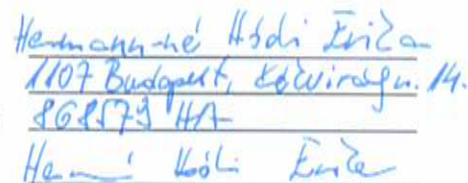 Hermann-né Hódi Erika
1107 Budapest, Kékvirág u. 14.
868573 HA
Hódi Erika